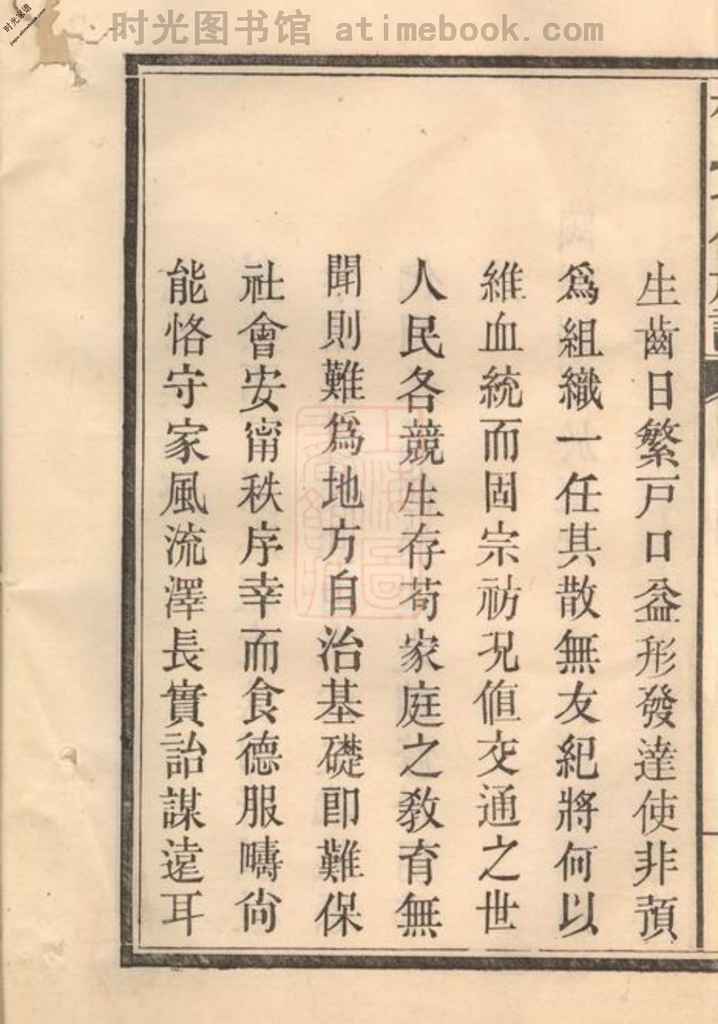 时光图书馆 atimebook.com
生齒日繁戸口益形發達使非預
爲組織一任其散無友紀將何以
維血統而固宗祊况値交通之世
人民各競生存苟家庭之教育無
聞則難爲地方自治基礎即難保
社會安甯秩序幸而食德服疇尙
能恪守家風流澤長實詒謀遠耳